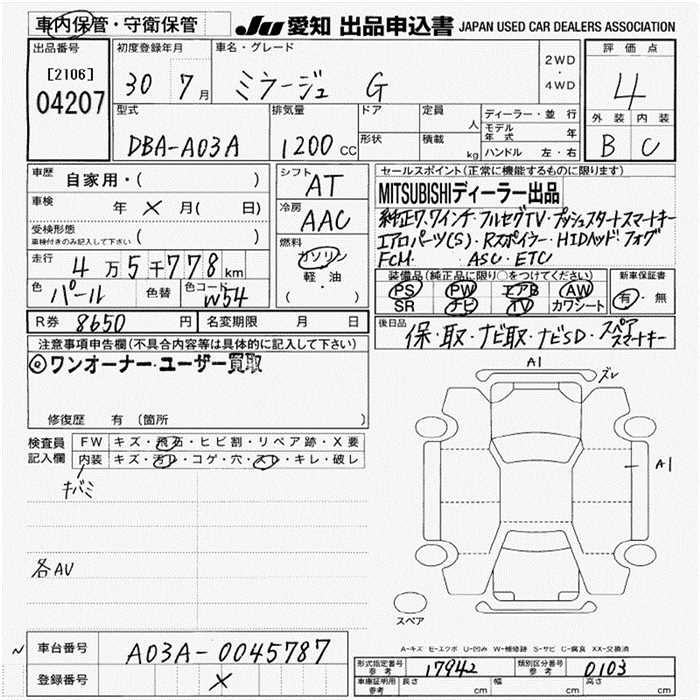 車内保管・守衛保管
JU 愛知 出品申込書 JAPAN USED CAR DEALERS ASSOCIATION
出品番号
[2106]
04207
初度登録年月
30 7月
車名・グレード
ミラージュ G
2WD
・
4WD
評価点
4
外装 内装
B C
型式
DBA-A03A
排気量
1200 CC
ドア
形状
定員
人
積載
kg
ディーラー・並行
モデル年式 年
ハンドル 左・右
車歴
自家用・( )
車検
年 × 月( 日)
受検形態
車検付きのみ記入して下さい ( )
走行
4万5千778km
色
パール
色替
色コード
W54
シフト
AT
冷房
AAC
燃料
ガソリン
軽・油
( )
セールスポイント(正常に機能するものに限ります)
MITSUBISHIディーラー出品
純正7.7インチ・フルセグTV・プッシュスタートスマートキー
エアロパーツ(S)・Rスポイラー・HIDヘッド・フォグ
FCM ASC・ETC
装備品(純正品に限り○をつけてください)
PS PW エアB AW
SR ナビ TV カワシート
新車保証書
有・無
R券 8650円
名変期限 月 日
後日品
保・取・ナビ取・ナビSD・スペアスマートキー
注意事項申告欄(不具合内容等は具体的に記入して下さい)
◎ワンオーナー・ユーザー買取
修復歴 有 (箇所 )
検査員
記入欄
FW キズ・飛石・ヒビ割・リペア跡・X要
内装 キズ・汚レ・コゲ・穴・スレ・キレ・破レ
キバミ
各AV
A1
ズレ
A1
スペア
A-キズ E-エクボ U-凹み W-補修跡 S-サビ C-腐食 XX-交換済
車台番号
A03A-0045787
登録番号
×
型式指定番号
参考
17942
類別区分番号
参考
0103
車庫証明用
参考
長さ cm 幅 cm 高さ cm